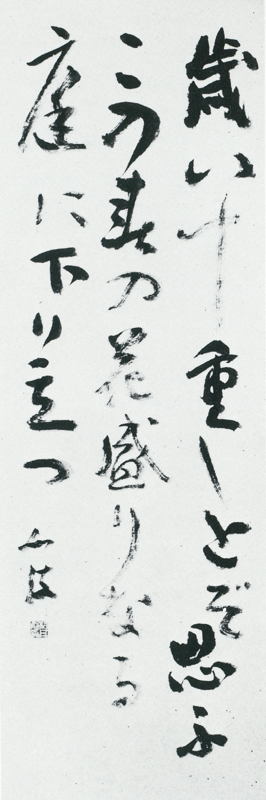 歳い重しとぞ思ふ
この春の花盛りなる
庭に下り立つ